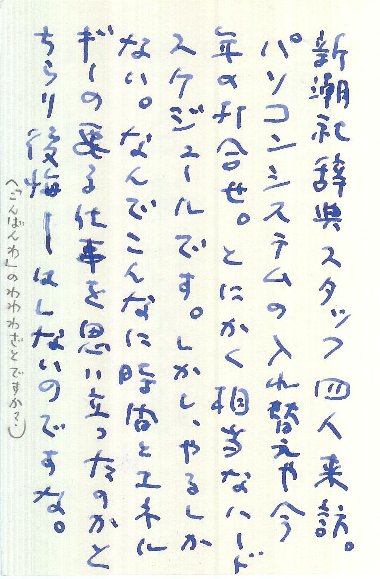 新潮社辞典スタッフ四人来訪。
パソコンシステムの入れ替えや今
年の打合せ。とにかく相当なハード
スケジュールです。しかし、やるしか
ない。なんでこんなに時間とエネル
ギーの要る仕事を思い立ったのかと
ちらり後悔しはしないのですな。
(「こんばんわ」のわわわざとですか?)